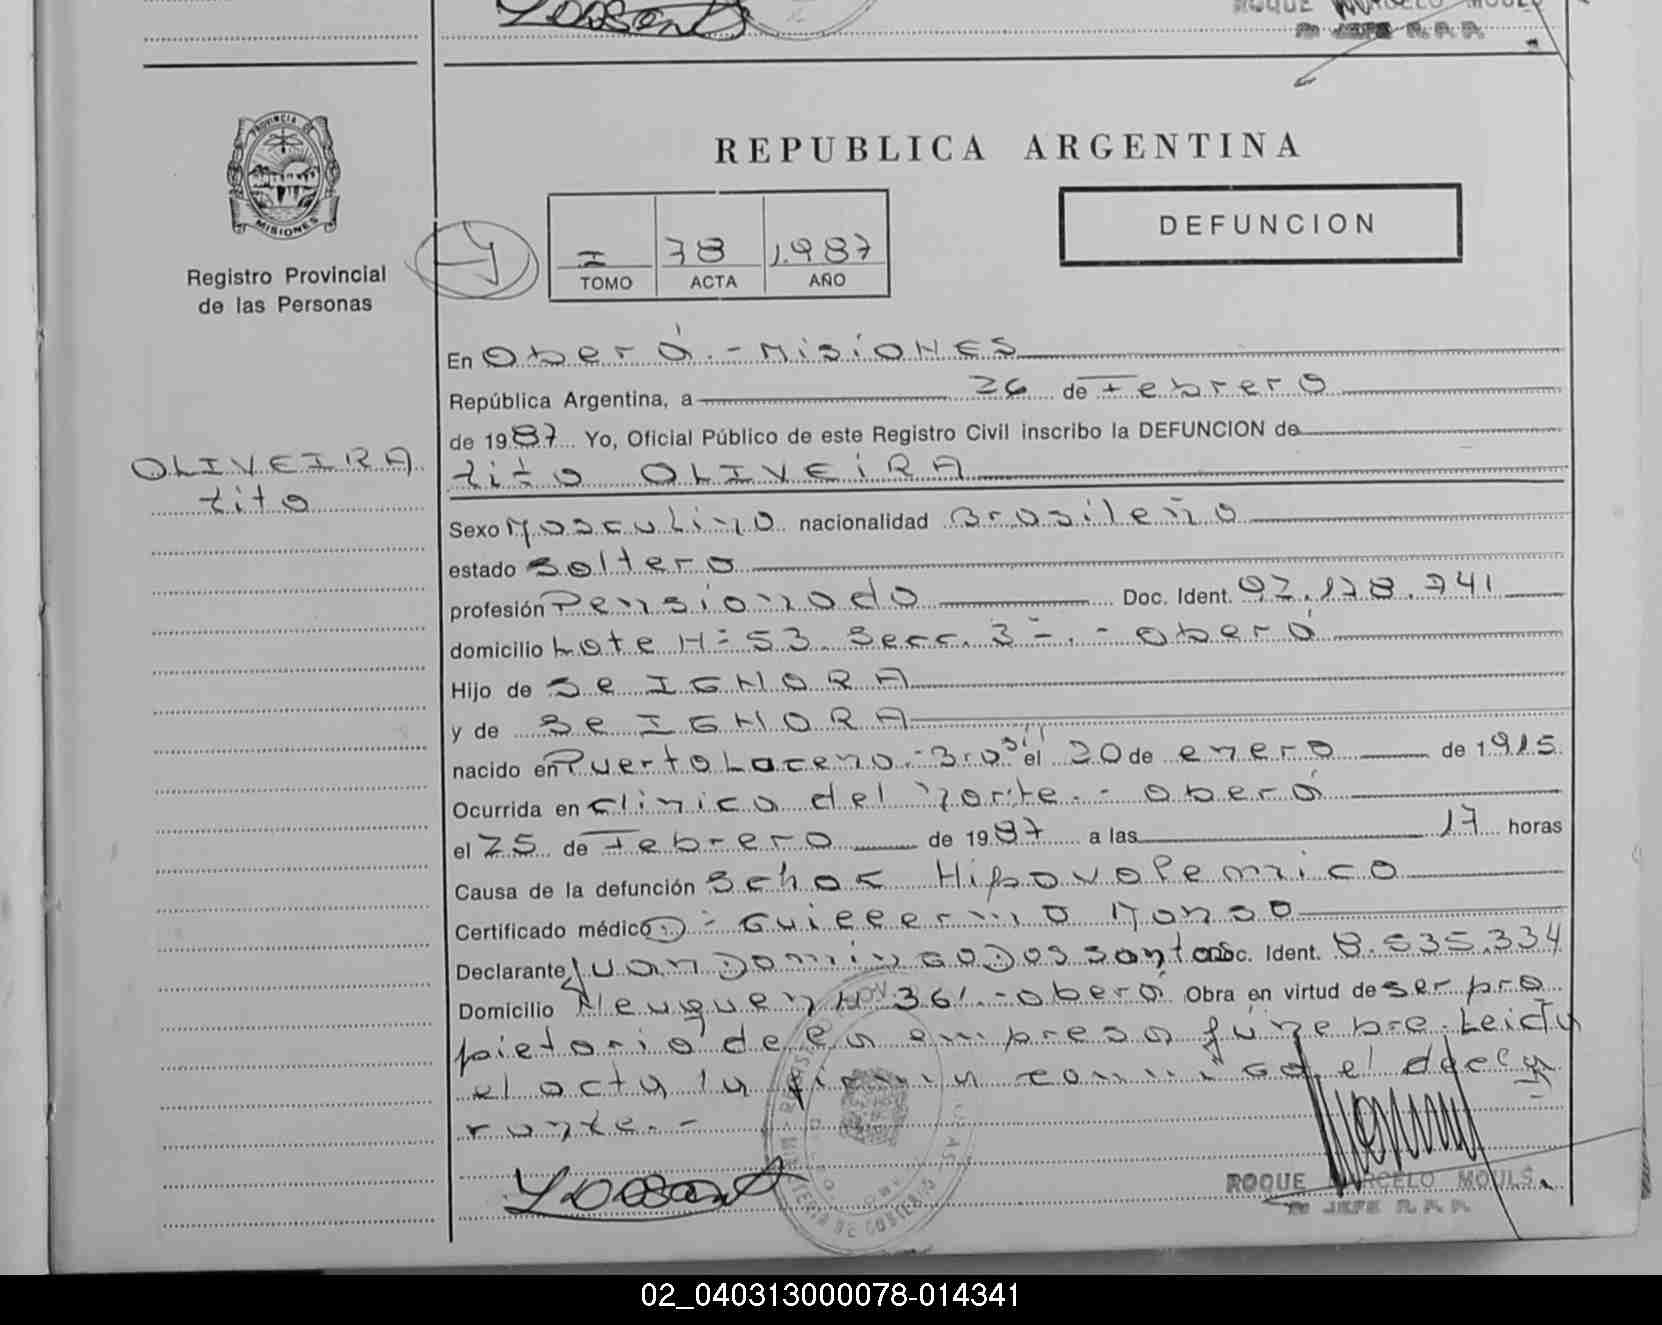 ROQUE MARCELO MOULS
JEFE R.P.P.
PROVINCIA DE
MISIONES
Registro Provincial
de las Personas
REPUBLICA ARGENTINA
DEFUNCION
I 78 1.987
TOMO ACTA AÑO
En Oberá.- MISIONES
República Argentina, a 26 de Febrero
de 1987 Yo, Oficial Público de este Registro Civil inscribo la DEFUNCION de
tito OLIVEIRA
OLIVEIRA
tito
Sexo Masculino nacionalidad Brasileño
estado Soltero
profesión Pensionado Doc. Ident. 92.178.741
domicilio Lote N= 53 Secc. 3=.- Oberá
Hijo de Se IGNORA
y de Se IGNORA
nacido en Puerto Laceno.- Brasil el 20 de enero de 1915
Ocurrida en clinica del Norte.- Oberá
el 25 de Febrero de 1987 a las 17 horas
Causa de la defunción Schok Hipovolemico
Certificado médico D= Guillermo Monso
Declarante Juan Domingo Dos Santos Doc. Ident. 8.535.334
Domicilio Neuquen N= 361.- Oberá Obra en virtud de ser pro
pietario de la empresa fúnebre. Leida
el acta la firma conmigo el decla
rante.-
ROQUE MARCELO MOULS
JEFE R.P.P.
02_040313000078-014341